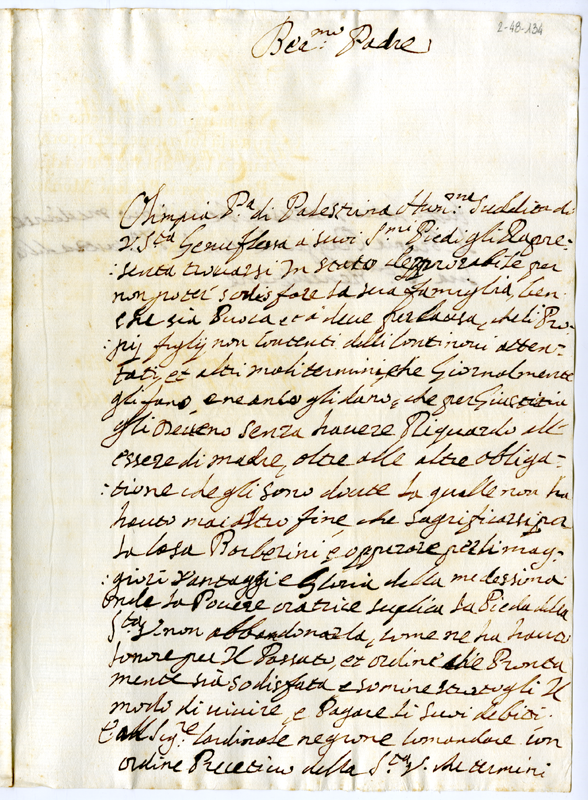 2-48-134
Bea.mo Padre
Olimpia P.a di Palestrina Hum.ma Suddita di
V S.tà Genuflessa a suoi S.mi Piedi gli Rapre-
:senta trovarsi in stato deplorabile per
non poter sodisfare la sua famiglia, ben
che sia Puoca, e ciò deve per causa, che li Pro-
:pij figlij non contenti delli continoui atten-
tati, et altri mali termini, che Giornalmente
gli fano, e ne anco gli dano, che per Giustitia
gli deveno senza havere Riguardo all'
essere di madre, oltre alle altre obliga-
:tione che gli sono dovute la qualle non ha
hauto mai altro fine che sagrificarsi per
la Casa Barberini, e oppurare per li mag-
:giori Vantaggi e Gloria della medessima
onde la Povera oratrice suplica la Pietà della
S.tà V. non abbandonarla, come ne ha hauto
lonore per Il Passato, et ordine che Pronta
mente sia sodisfata e suministratogli Il
modo di vivere, e Pagare li suoi debiti.
E all Sig.re Cardinale negrone comandare con
ordine Precetivo della S.tà V. che termini